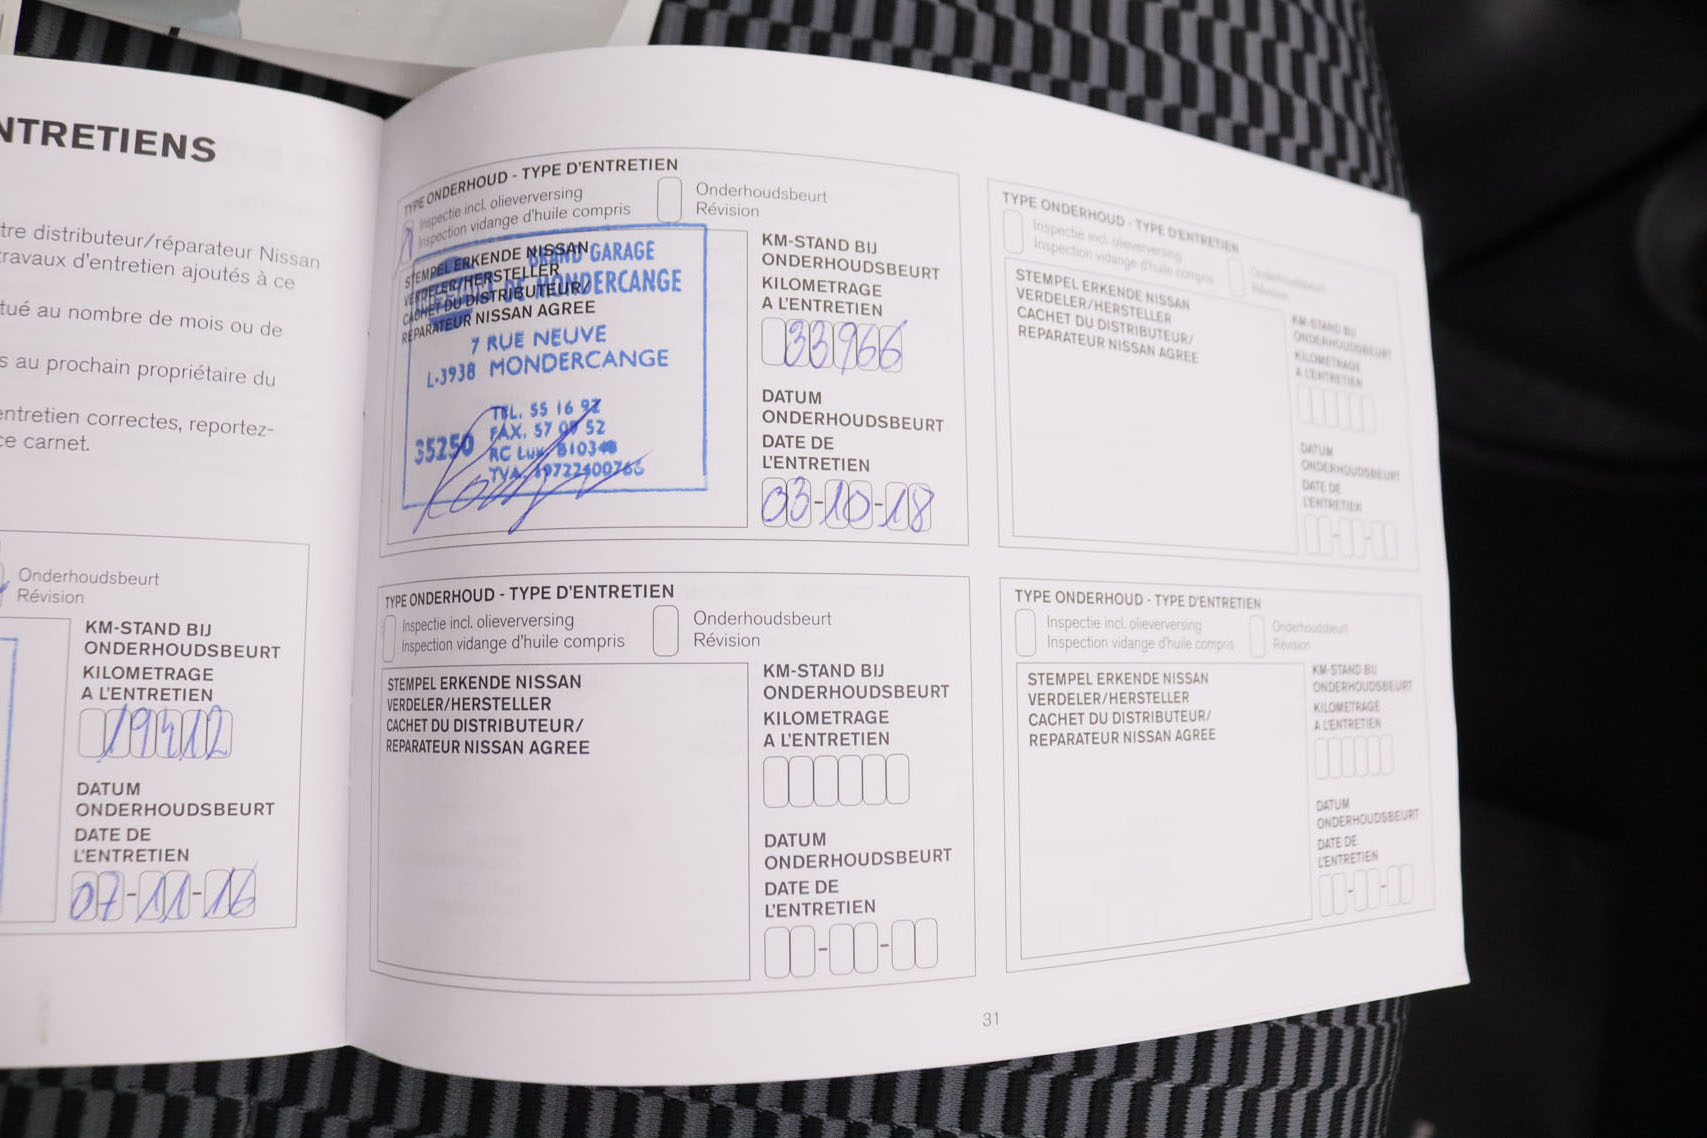 NTRETIENS
tre distributeur/réparateur Nissan
ravaux d'entretien ajoutés à ce
tué au nombre de mois ou de
s au prochain propriétaire du
entretien correctes, reportez-
ce carnet.
Onderhoudsbeurt
Révision
KM-STAND BIJ
ONDERHOUDSBEURT
KILOMETRAGE
A L'ENTRETIEN
19412
DATUM
ONDERHOUDSBEURT
DATE DE
L'ENTRETIEN
07-11-16
TYPE ONDERHOUD - TYPE D'ENTRETIEN
Inspectie incl. olieverversing
Inspection vidange d'huile compris
Onderhoudsbeurt
Révision
STEMPEL ERKENDE NISSAN
VERDELER/HERSTELLER
CACHET DU DISTRIBUTEUR/
REPARATEUR NISSAN AGREE
GRAND GARAGE
DE MONDERCANGE
7 RUE NEUVE
L-3938 MONDERCANGE
TEL. 55 16 92
FAX. 57 52
35250
RC Lux.
TVA
KM-STAND BIJ
ONDERHOUDSBEURT
KILOMETRAGE
A L'ENTRETIEN
33966
DATUM
ONDERHOUDSBEURT
DATE DE
L'ENTRETIEN
03-10-18
TYPE ONDERHOUD - TYPE D'ENTRETIEN
Inspectie incl. olieverversing
Inspection vidange d'huile compris
Onderhoudsbeurt
Révision
STEMPEL ERKENDE NISSAN
VERDELER/HERSTELLER
CACHET DU DISTRIBUTEUR/
REPARATEUR NISSAN AGREE
KM-STAND BIJ
ONDERHOUDSBEURT
KILOMETRAGE
A L'ENTRETIEN
DATUM
ONDERHOUDSBEURT
DATE DE
L'ENTRETIEN
TYPE ONDERHOUD - TYPE D'ENTRETIEN
Inspectie incl. olieverversing
Inspection vidange d'huile compris
Onderhoudsbeurt
Révision
STEMPEL ERKENDE NISSAN
VERDELER/HERSTELLER
CACHET DU DISTRIBUTEUR/
REPARATEUR NISSAN AGREE
KM-STAND BIJ
ONDERHOUDSBEURT
KILOMETRAGE
A L'ENTRETIEN
DATUM
ONDERHOUDSBEURT
DATE DE
L'ENTRETIEN
TYPE ONDERHOUD - TYPE D'ENTRETIEN
Inspectie incl. olieverversing
Inspection vidange d'huile compris
Onderhoudsbeurt
Révision
STEMPEL ERKENDE NISSAN
VERDELER/HERSTELLER
CACHET DU DISTRIBUTEUR/
REPARATEUR NISSAN AGREE
KM-STAND BIJ
ONDERHOUDSBEURT
KILOMETRAGE
A L'ENTRETIEN
DATUM
ONDERHOUDSBEURT
DATE DE
L'ENTRETIEN
31